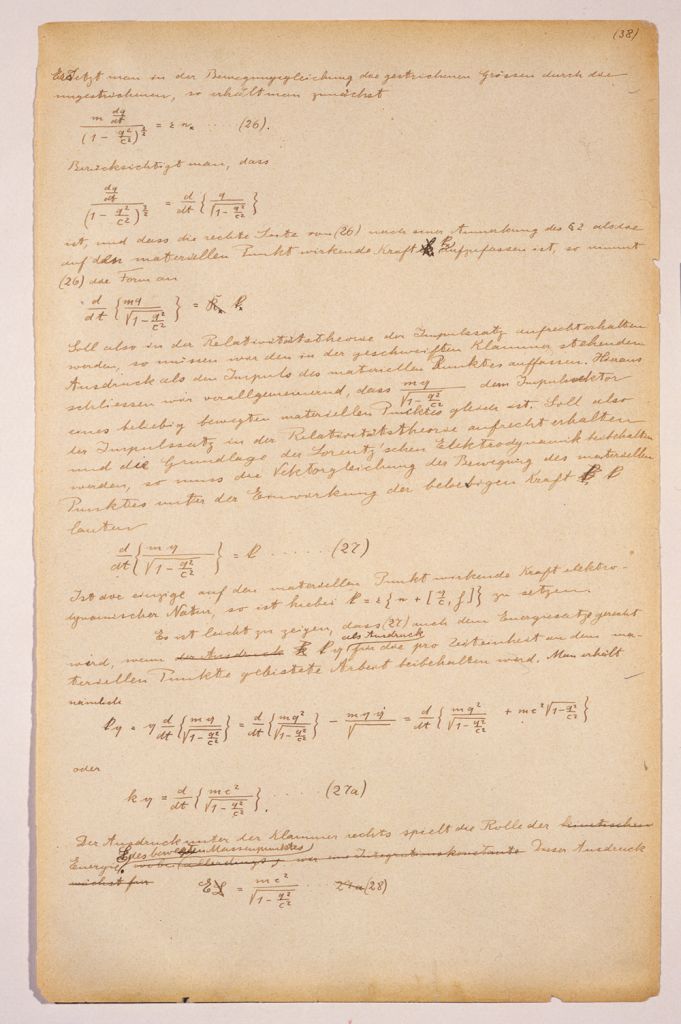 (38)
Ersetzt man in der Bewegungsgleichung die gestrichenen Grössen durch die
ungestrichenen, so erhält man zunächst
m dq/dt / (1 - q²/c²)^{3/2} = ε n_x ..... (26).
Berücksichtigt man, dass
dq/dt / (1 - q²/c²)^{3/2} = d/dt { q / √(1 - q²/c²) }
ist, und dass die rechte Seite von (26) nach einer Anmerkung des §2 als die
auf den materiellen Punkt wirkende Kraft aufzufassen ist, so nimmt
(26) die Form an
d/dt { mq / √(1 - q²/c²) } = k_x
Soll also in der Relativitätstheorie der Impulssatz aufrecht erhalten
werden, so müssen wir den in der geschweiften Klammer stehenden
Ausdruck als den Impuls des materiellen Punktes auffassen. Hieraus
schliessen wir verallgemeinernd, dass m𝔮 / √(1 - q²/c²) dem Impulsvektor
eines beliebig bewegten materiellen Punktes gleich ist. Soll also
der Impulssatz in der Relativitätstheorie aufrecht erhalten
und die Grundlage der Lorentz'schen Elektrodynamik beibehalten
werden, so muss die Vektorgleichung der Bewegung des materiellen
Punktes unter der Einwirkung der beliebigen Kraft 𝔨
lauten
d/dt { m𝔮 / √(1 - q²/c²) } = 𝔨 ...... (27)
Ist die einzige auf den materiellen Punkt wirkende Kraft elektro-
dynamischer Natur, so ist hiebei 𝔨 = ε { n + [𝔮/c, 𝔥] } zu setzen.
Es ist leicht zu zeigen, dass (27) auch dem Energiesatz gerecht
wird, wenn der Ausdruck 𝔨𝔮 als Ausdruck für die pro Zeiteinheit an dem ma-
teriellen Punkte geleistete Arbeit beibehalten wird. Man erhält
nämlich
𝔨𝔮 = 𝔮 d/dt { m𝔮 / √(1 - q²/c²) } = d/dt { mq² / √(1 - q²/c²) } - m𝔮𝔮̇ / √ = d/dt { mq² / √(1 - q²/c²) + mc² √(1 - q²/c²) }
oder
𝔨𝔮 = d/dt { mc² / √(1 - q²/c²) }. ..... (27a)
Der Ausdruck unter der Klammer rechts spielt die Rolle der kinetischen
Energie E des bewegten Massenpunktes, wobei (allerdings) Integrationskonstante Dieser Ausdruck
wächst für
E = mc² / √(1 - q²/c²) ... 27a (28)